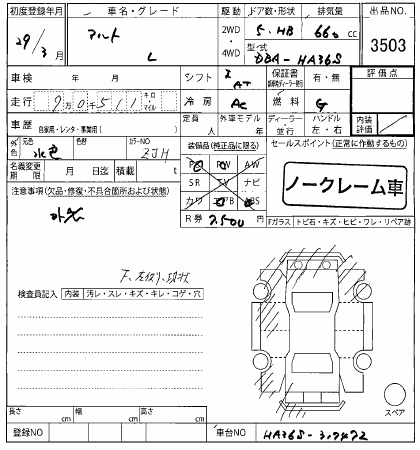 初度登録年月 車名・グレード 駆動 ドア数・形状 排気量 出品NO.
29年 3月 アルト L 2WD 4WD 5・HB 660cc 3503
型式 DBA-HA36S
車検 年 月 シフト AT 保証書 有・無 評価点
走行 90千511 キロ マイル 冷房 AC 燃料 G
車歴 自家用・レンタ・事業用( ) 定員 人 外車モデル 年 ディーラー・並行 ハンドル 左・右 内装評価
外色 元色 水色 色替 カラーNO ZJH 装備品(純正品に限る) セールスポイント(正常に作動するもの)
名義変更期限 月 日迄 積載 t PS PW AW ノークレーム車
注意事項(欠品・修復・不具合箇所および状態) SR TV ナビ
カワ エアB ABS
R券 7,500円 Fガラス トビ石・キズ・ヒビ・ワレ・リペア跡
検査員記入 内装 汚レ・スレ・キズ・キレ・コゲ・穴
スペア
長さ cm 幅 cm 高さ cm
登録NO 車台NO HA36S-327472